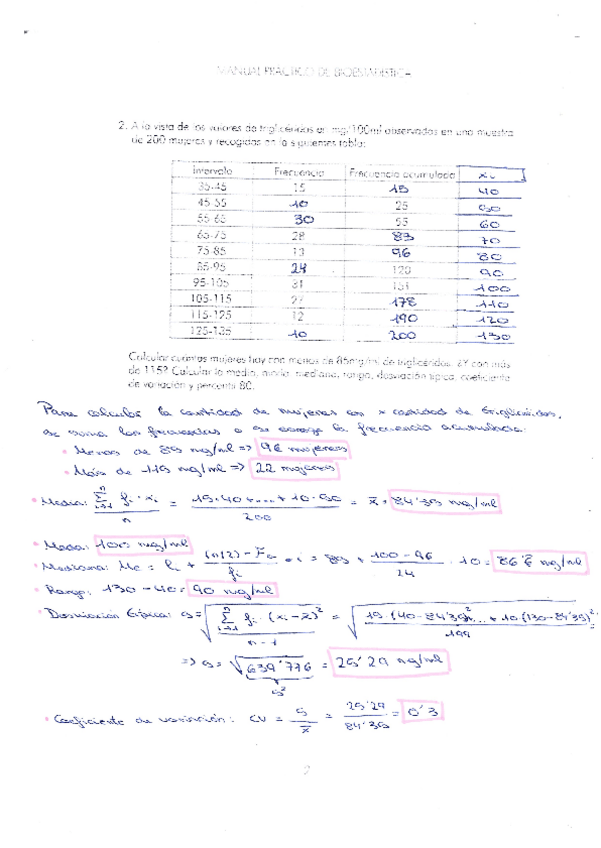 MANUAL PRÁCTICO DE BIOESTADÍSTICA
2. A la vista de los valores de triglicéridos en mg/100ml observados en una muestra
de 200 mujeres y recogidas en la siguientes tabla:
Intervalo Frecuencia Frecuencia acumulada xi
35-45 15 15 40
45-55 10 25 50
55-65 30 55 60
65-75 28 83 70
75-85 13 96 80
85-95 24 120 90
95-105 31 151 100
105-115 27 178 110
115-125 12 190 120
125-135 10 200 130
Calcular cuántas mujeres hay con menos de 85mg/ml de triglicéridos. ¿Y con más
de 115? Calcular la media, moda, mediana, rango, desviación típica, coeficiente
de variación y percentil 80.
Para calcular la cantidad de mujeres con x cantidad de triglicéridos,
se suma las frecuencias o se escoge la frecuencia acumulada:
• Menos de 85 mg/ml => 96 mujeres
• Más de 115 mg/ml => 22 mujeres
• Media: Σ fi · xi / n = 15·40+....+10· / 200 = x̄ = 84'35 mg/ml
• Moda: 100 mg/ml
• Mediana: Me = li + (n/2) - Fa / fi · i = 85 + 100-96 / 24 · 10 = 86'6 mg/ml
• Rango: 130-40 = 90 mg/ml
• Desviación típica: s = √ Σ fi · (xi - x̄)² / n-1 = √ 15(40-84'35)²... + 10(130-84'35)² / 199
=> s = √639'776 = 25'29 mg/ml
s²
• Coeficiente de variación: CV = s / x̄ = 25'29 / 84'35 = 0'3
2